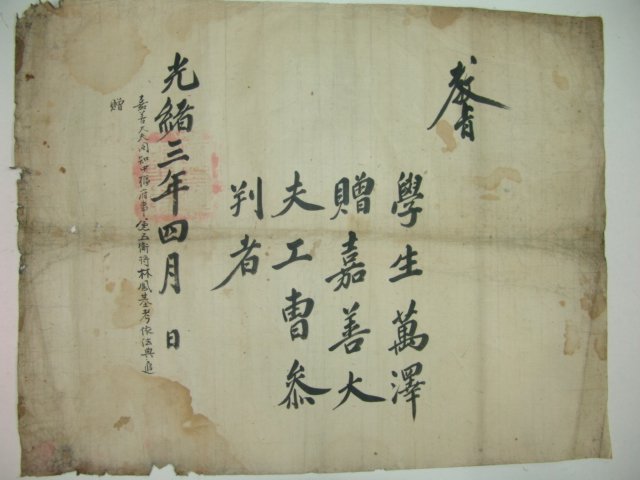 敎旨
學生萬澤
贈嘉善大
夫工曹叅
判者
光緖三年四月 日
嘉善大夫同知中樞府事兼五衛將林鳳基考依法典追
贈